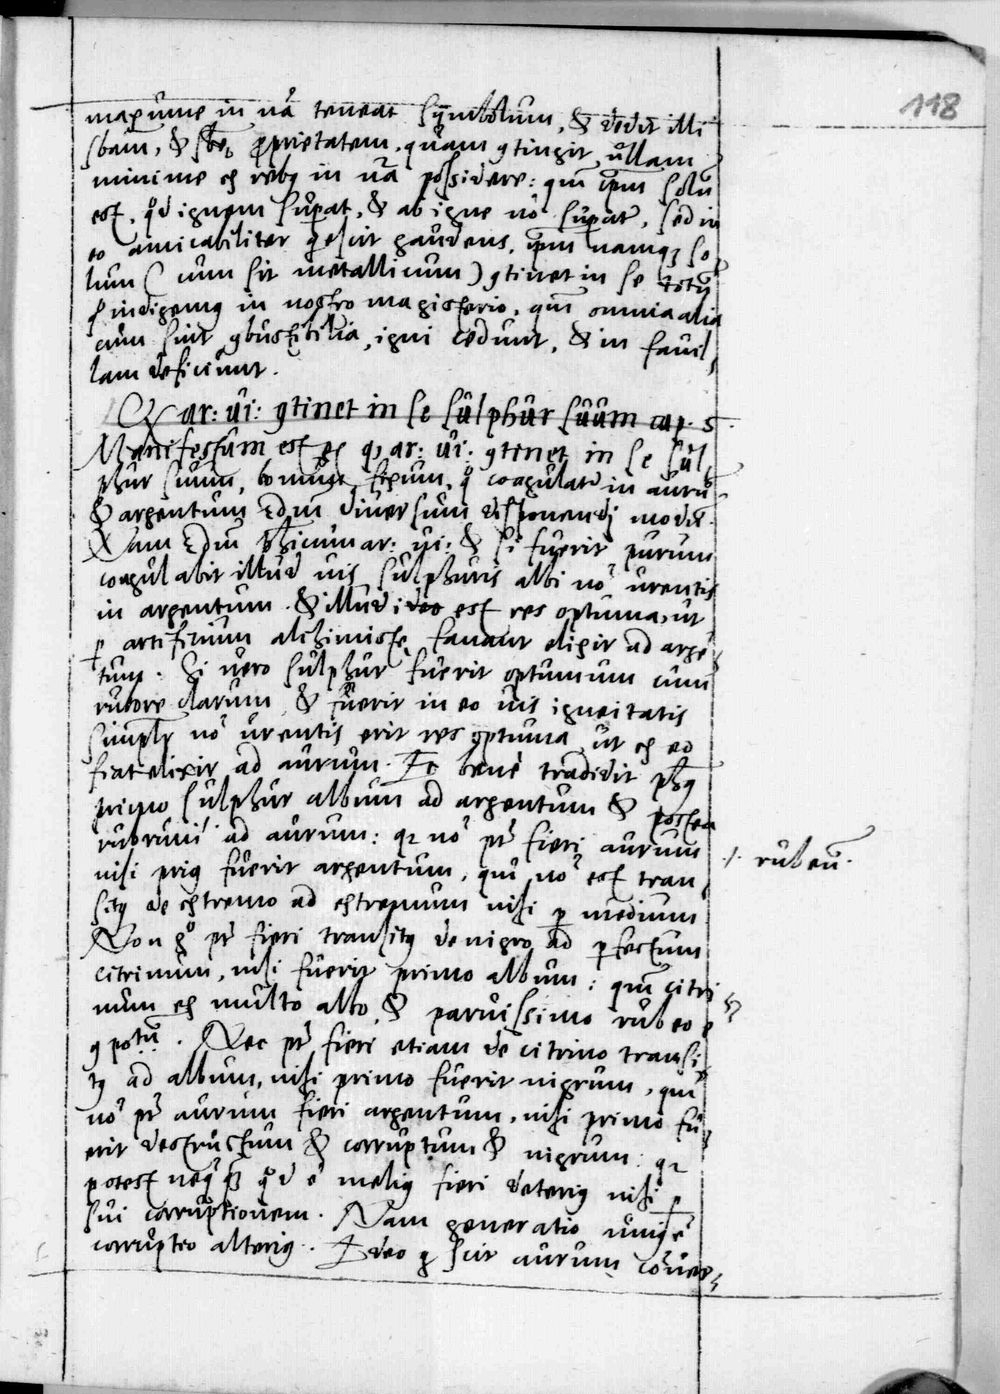 118
maxume in nã teneat symbolum, & dedit illi
sbam, & sbę proprietatem, quam ꝯtingit ullam
minime ex rebꝰ in nã possidere: qm ipm solũ
est, qd ignem supat, & ab igne nõ supat, sed in
eo amicabiliter qescit gaudens, ipm namqꝫ so
lum (cum sit metallicum) ꝯtinet in se totũ
indigemꝰ in nostro magisterio, qm omnia alia
cum sint ꝯbustibilia, igni cedunt, & in favil
lam deficiunt.
Q ar: ui: ꝯtinet in se sulphur suum cap. 5.
Manifestum est qꝫ ar: ui: ꝯtinet in se sul
phur suum, qꝰ coagulatr in aurũ
& argentum sdm diversum disponendi modũ.
Nam sdm phicum ar: ui: & si fuerit purum
coagulabit illud uis sulphuris albi nõ urentis
in argentum. & illud ideo est res optima, ut
p artificium alchimistę faciant elixir ad argẽ
tum: Si uero sulphur fuerit optimum cum
rubore clarum & fuerit in eo uis igneitatis
simplr nõ urentis erit res optima, ut ex eo
fiat elixir ad aurum. Et bene tradidit phꝰ
primo sulphur album ad argentum & postea
rubrum ad aurum: qz nõ pt fieri aurum
nisi priꝰ fuerit argentum, qm nõ est tran
sitꝰ de extremo ad extremum nisi p medium
Non gº pt fieri transitꝰ de nigro ad pfectum
citrinum, nisi fuerit primo album: qm citri
num ex multo albo & parvissimo rubeo ẽ
ꝯpotũ. Nec pt fieri etiam de citrino transi
tꝰ ad album, nisi primo fuerit nigrum, qm
nõ pt aurum fieri argentum, nisi primo fu
erit destructum & corruptum & nigrum: qz
potest qd ẽ meliꝰ fieri deteriꝰ nisi p
sui corruptionem. Nam generatio uniꝰ ẽ
corruptio alteriꝰ. Ideo q scit aurum conver
/. rubeũ.